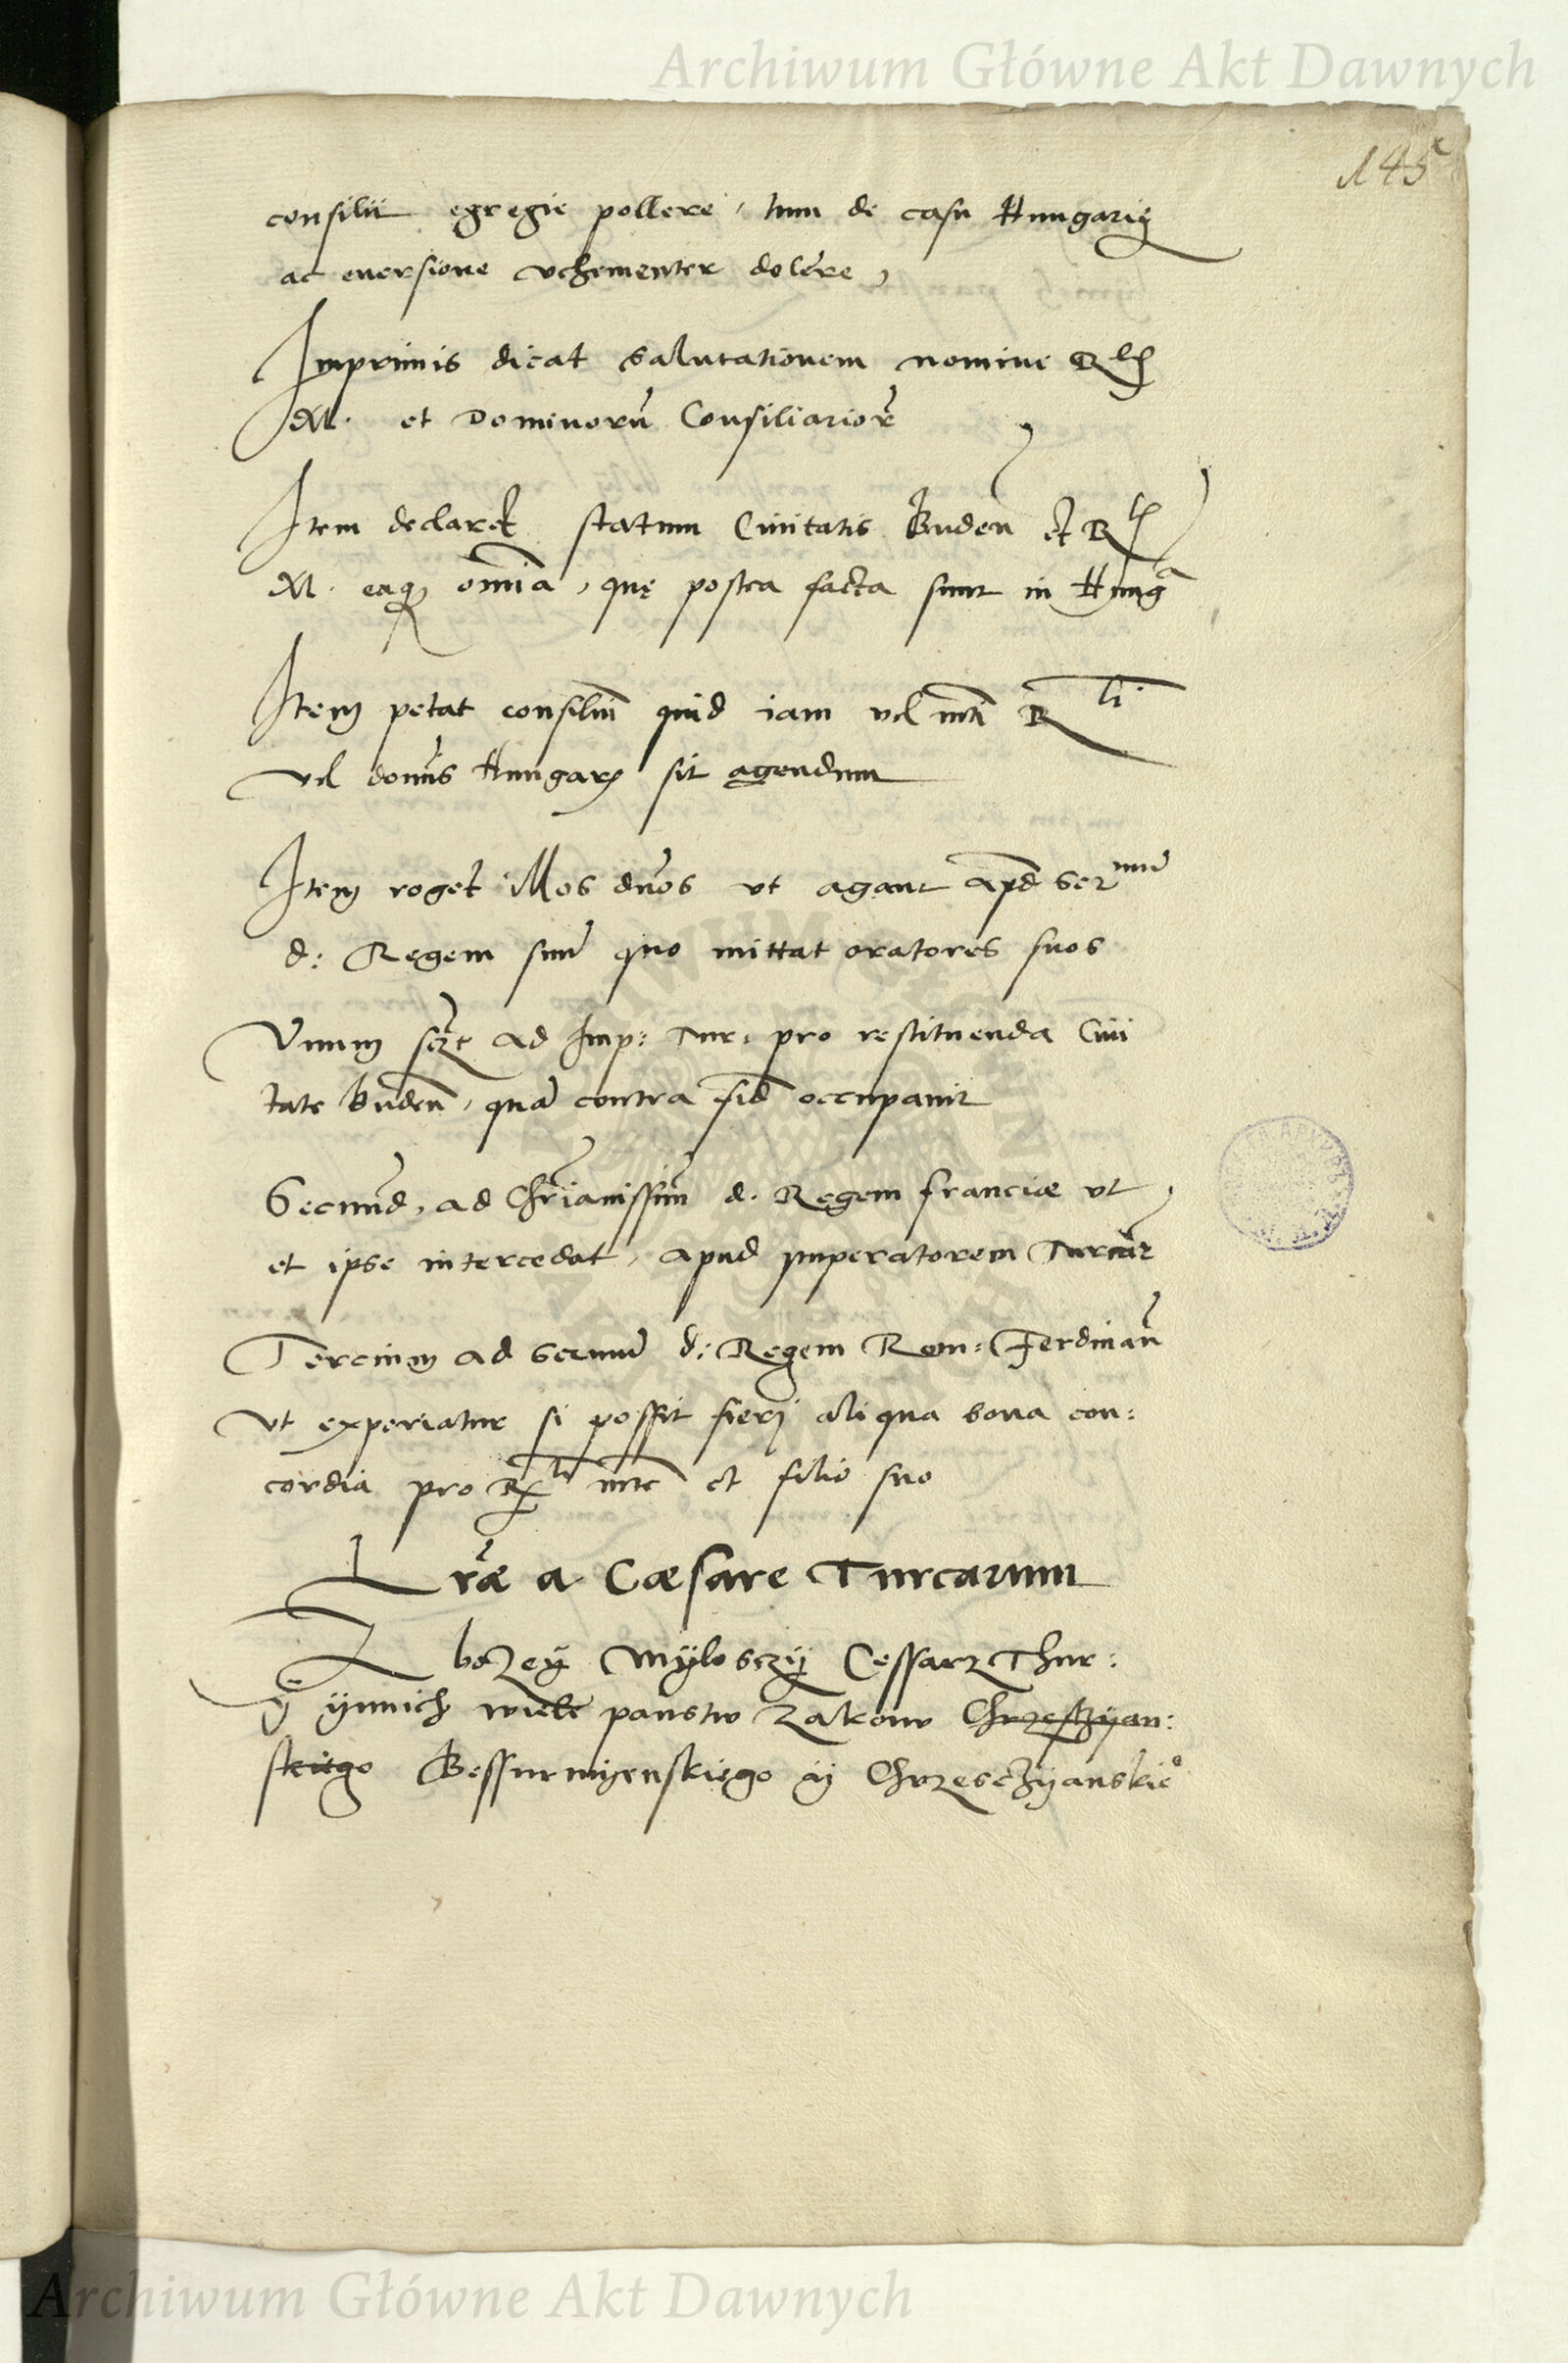 Archiwum Główne Akt Dawnych
145
consilii egregie pollere, tum de casu Hungarię
ac eversione vehementer dolere,
Imprimis dicat salutationem nomine R
M. et Dominorū Consiliarior
Item declaret statum Civitatis Buden et R
M. eaqȝ omīa, quę postea facta sunt in Hung
Item petat consiliū quid iam vel mti R li
vel domīs Hungar sit agendum
Item roget illos dnos ut agant apd ser mū
d: Regem suū quo mittat oratores suos
Unum ad Imp: Tur: pro restituenda Civi
tate budeñ, quā contra fid occupavit
Secund, ad Chrīanissim d. Regem franciæ ut
et ipse intercedat, apud Imperatorem Turcar
Tercium ad sermū d: Regem Rom: Ferdinan
ut experiatur si possit fieri aliqua bona con:
cordia pro R li mte et filio suo
Lræ a Cæsare Turcarum
Z bozey myloſczÿ Cessarz Thur:
ÿ ÿnnich wiele panstw zakonw Chrzesczÿan:
skiego Bessurmÿenskiego ÿ Chrzesczÿanskie°
Archiwum Główne Akt Dawnych